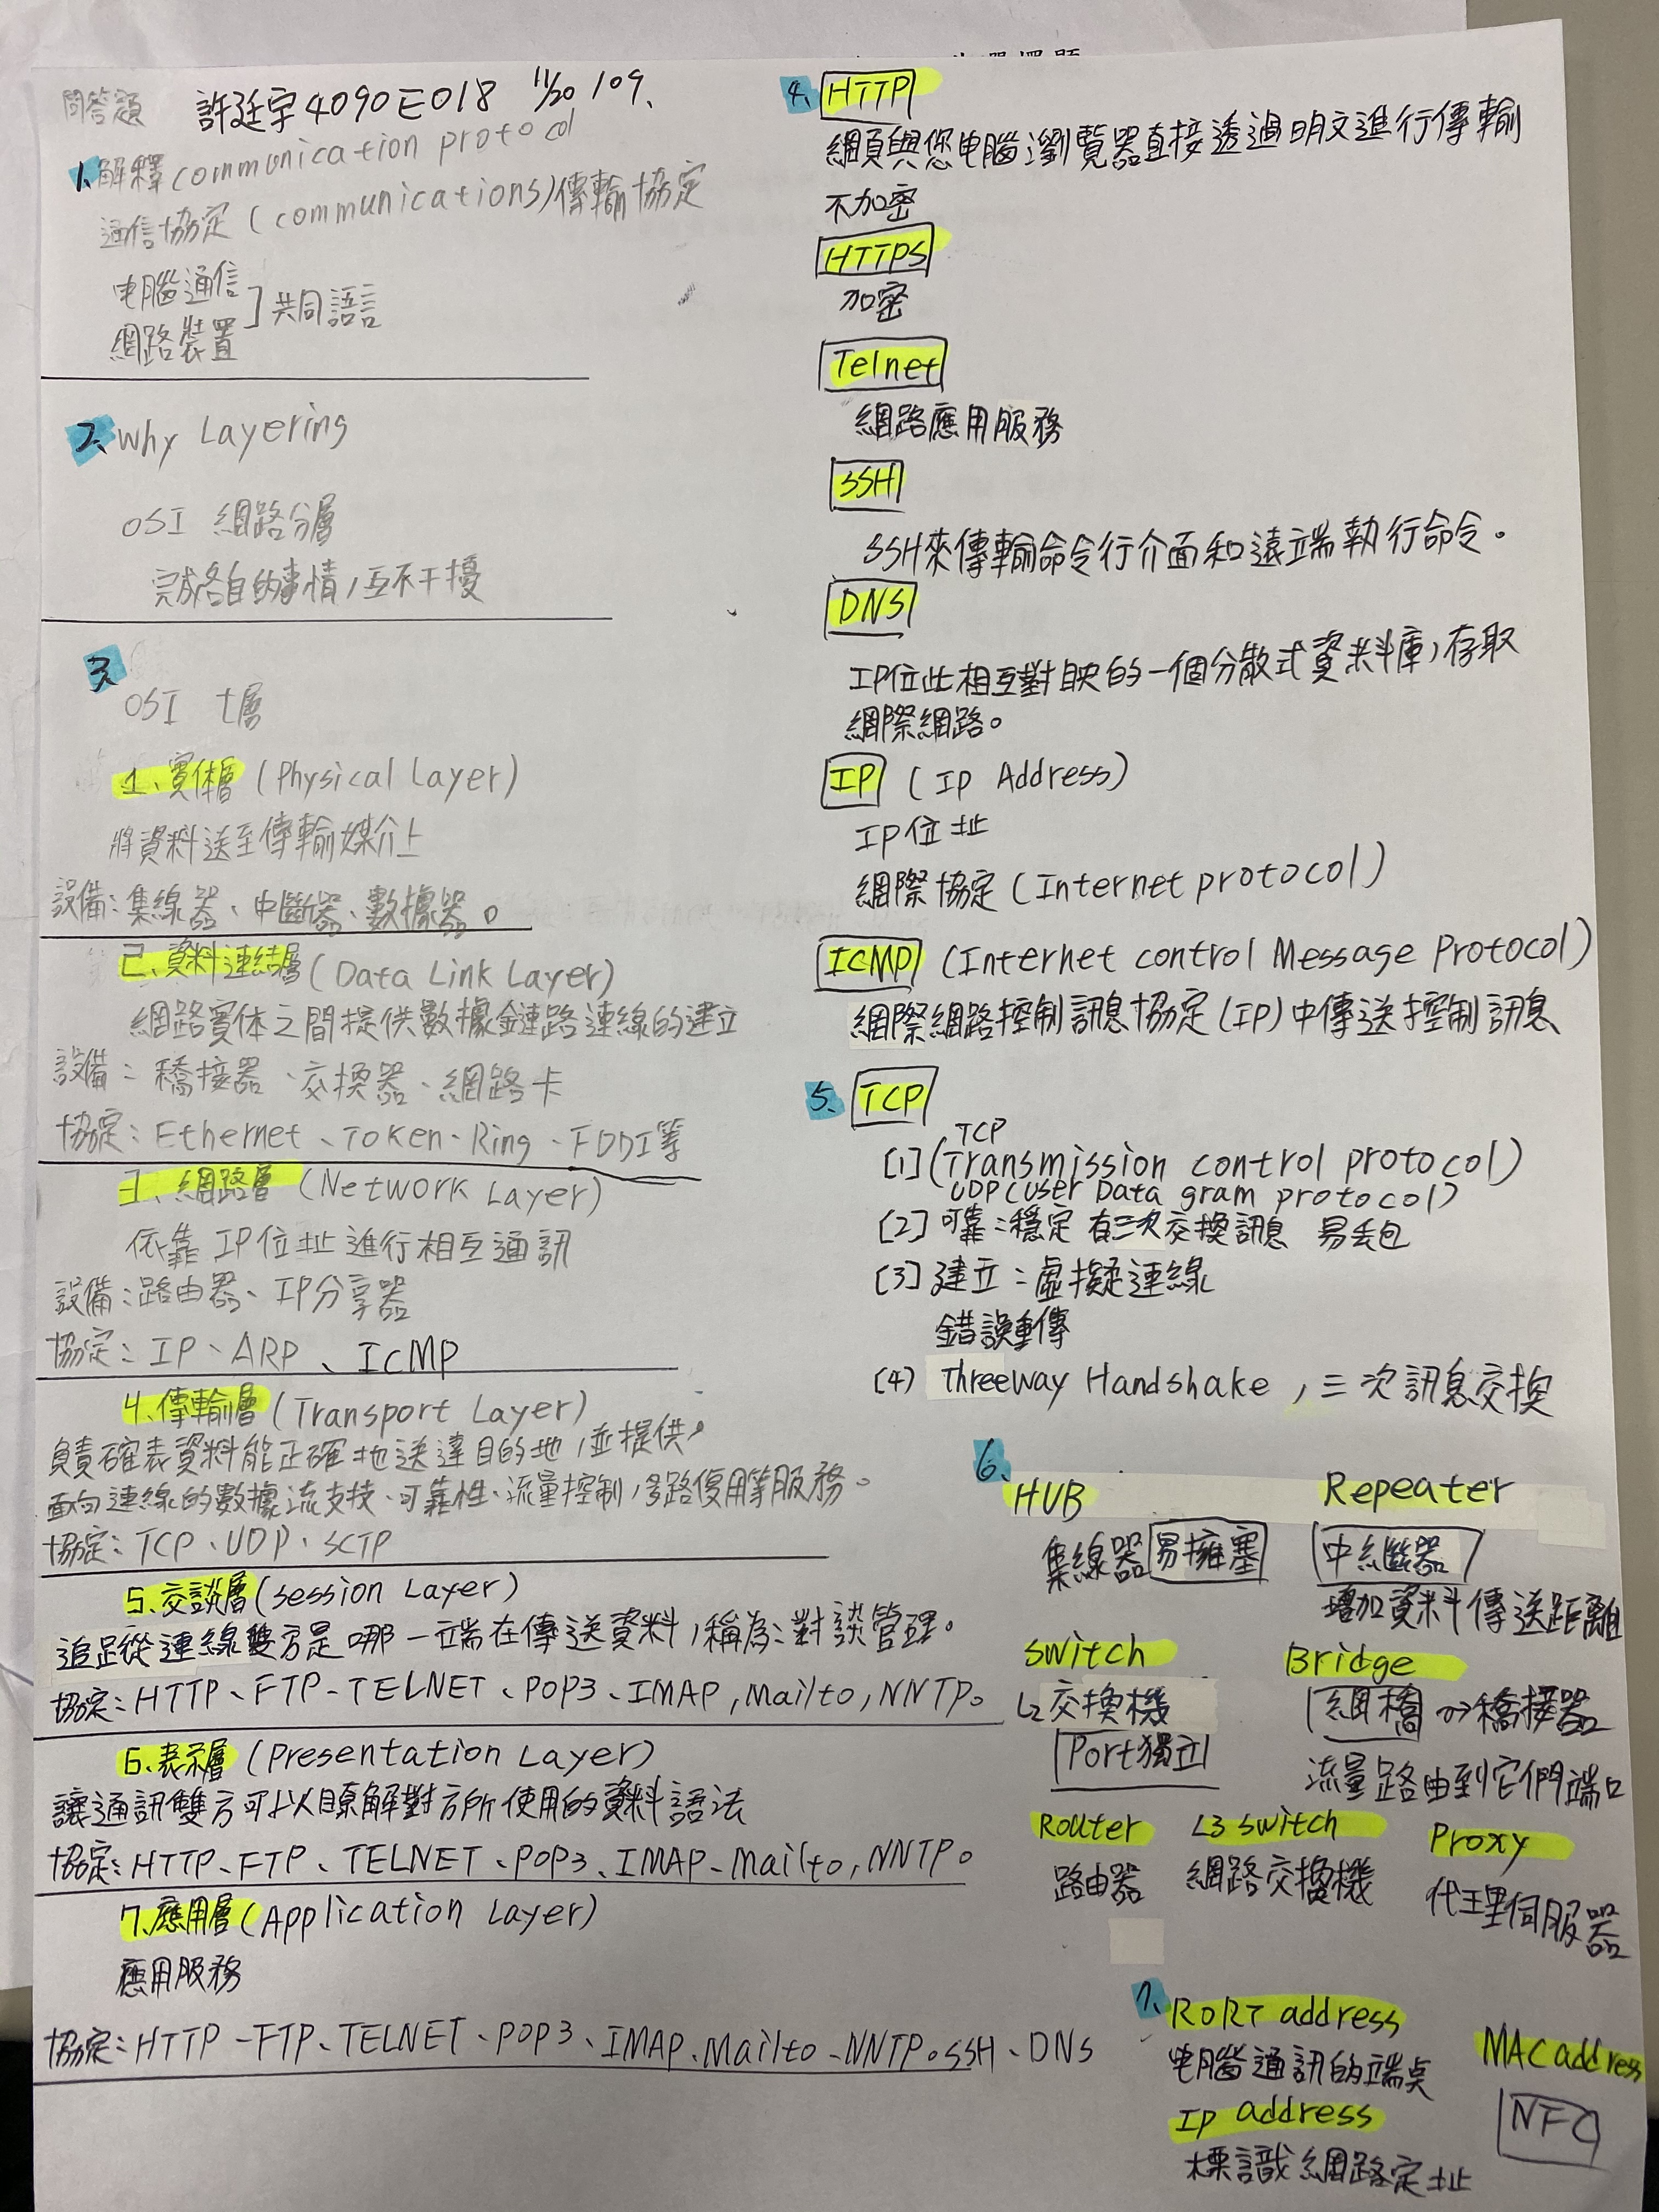 問答題 許廷宇4090E018 11/20 109、
1、解釋communication protocol
通信協定(communications)傳輸協定
电腦通信
網路裝置
] 共同語言
2、Why Layering
OSI 網路分層
完成各自的事情,互不干擾
3、
OSI 七層
1、實体層 (Physical Layer)
將資料送至傳輸媒介上
設備:集線器、中斷器、數據器。
2、資料連結層(Data Link Layer)
網路實体之間提供數據鏈路連線的建立
設備:橋接器、交換器、網路卡
協定:Ethernet、Token-Ring、FDDI等
3、網路層 (Network Layer)
依靠 IP位址進行相互通訊
設備:路由器、IP分享器
協定:IP、ARP、ICMP
4、傳輸層(Transport Layer)
負責確表資料能正確地送達目的地,並提供,
面向連線的數據流支技、可靠性、流量控制,多路復用等服務。
協定:TCP、UDP、SCTP
5、交談層(Session Layer)
追蹤從連線雙方是哪一端在傳送資料,稱為:對談管理。
協定:HTTP、FTP-TELNET、POP3、IMAP,Mailto,NNTP。
6、表示層(Presentation Layer)
讓通訊雙方可以瞭解對方所使用的資料語法
協定:HTTP、FTP、TELNET、POP3、IMAP-Mailto,NNTP。
7、應用層(Application Layer)
應用服務
協定:HTTP-FTP、TELNET、POP3、IMAP、Mailto-NNTP。SSH、DNS
4、HTTP
網頁與您电腦瀏覽器直接透過明文進行傳輸
不加密
HTTPS
加密
Telnet
網路應用服務
SSH
SSH來傳輸命令行介面和遠端執行命令。
DNS
IP位此相互對映的一個分散式資料庫,存取
網際網路。
IP (Ip Address)
IP位址
網際協定(Internet protocol)
ICMP (Internet control Message Protocol)
網際網路控制訊息協定(IP)中傳送控制訊息
5、TCP
TCP
[1](Transmission control protocol)
UDP(User Data gram protocol)
[2]可靠:穩定 有三次交換訊息 易丟包
[3]建立:虛擬連線
錯誤重傳
(4) Threeway Handshake,三次訊息交換
6、
HUB Repeater
集線器 易擁塞 中繼器
增加資料傳送距離
Switch Bridge
L2交換機 網橋 → 橋接器
Port獨立 流量路由到它們端口
Router L3 switch Proxy
路由器 網路交換機 代理伺服器
7、RORT address
电腦通訊的端点 MAC address
Ip address NFC
標識網路定址